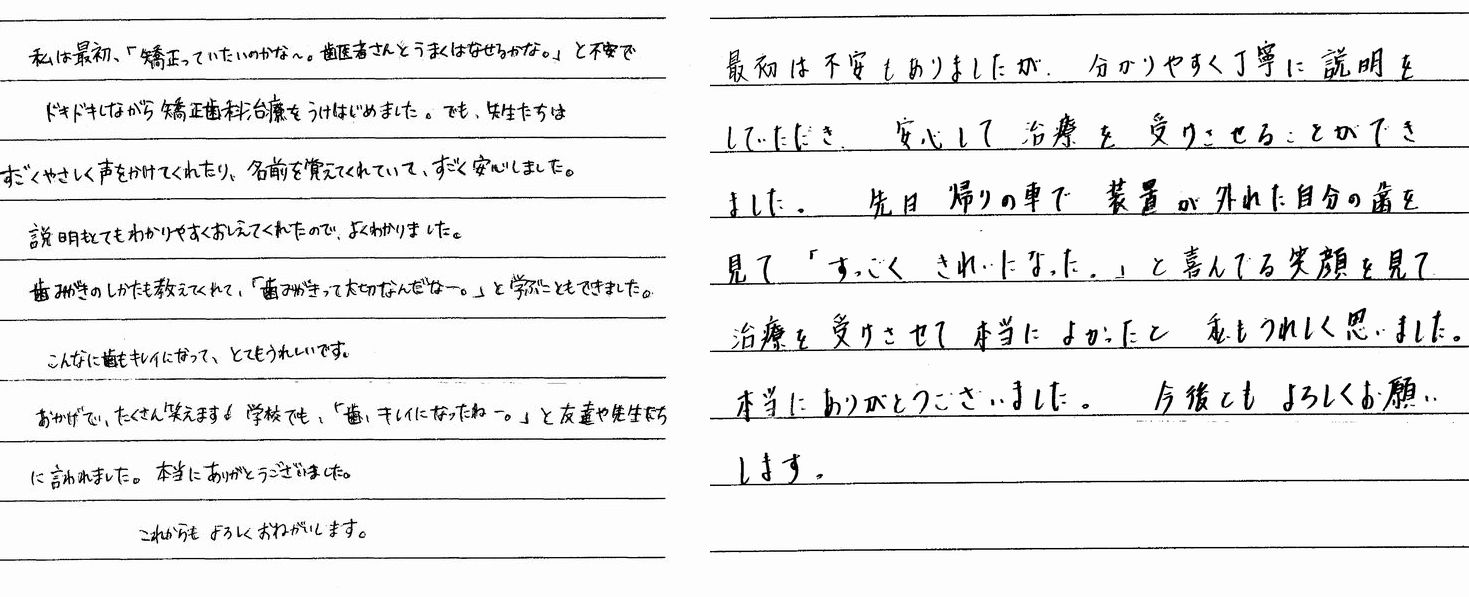 私は最初、「矯正っていたいのかな〜。歯医者さんとうまくはなせるかな。」と不安で
ドキドキしながら矯正歯科治療をうけはじめました。でも、先生たちは
すごくやさしく声をかけてくれたり、名前を覚えてくれていて、すごく安心しました。
説明もとてもわかりやすくおしえてくれたので、よくわかりました。
歯みがきのしかたも教えてくれて、「歯みがきって大切なんだなー。」と学ぶこともできました。
こんなに歯もキレイになって、とてもうれしいです。
おかげで、たくさん笑えます! 学校でも、「歯、キレイになったねー。」と友達や先生たち
に言われました。本当にありがとうございました。
これからも よろしくおねがいします。
最初は不安もありましたが、分かりやすく丁寧に説明を
していただき、安心して治療を受けさせることができ
ました。先日帰りの車で装置が外れた自分の歯を
見て「すっごく きれいになった。」と喜んでる笑顔を見て
治療を受けさせて本当によかったと私もうれしく思いました。
本当にありがとうございました。今後ともよろしくお願い
します。